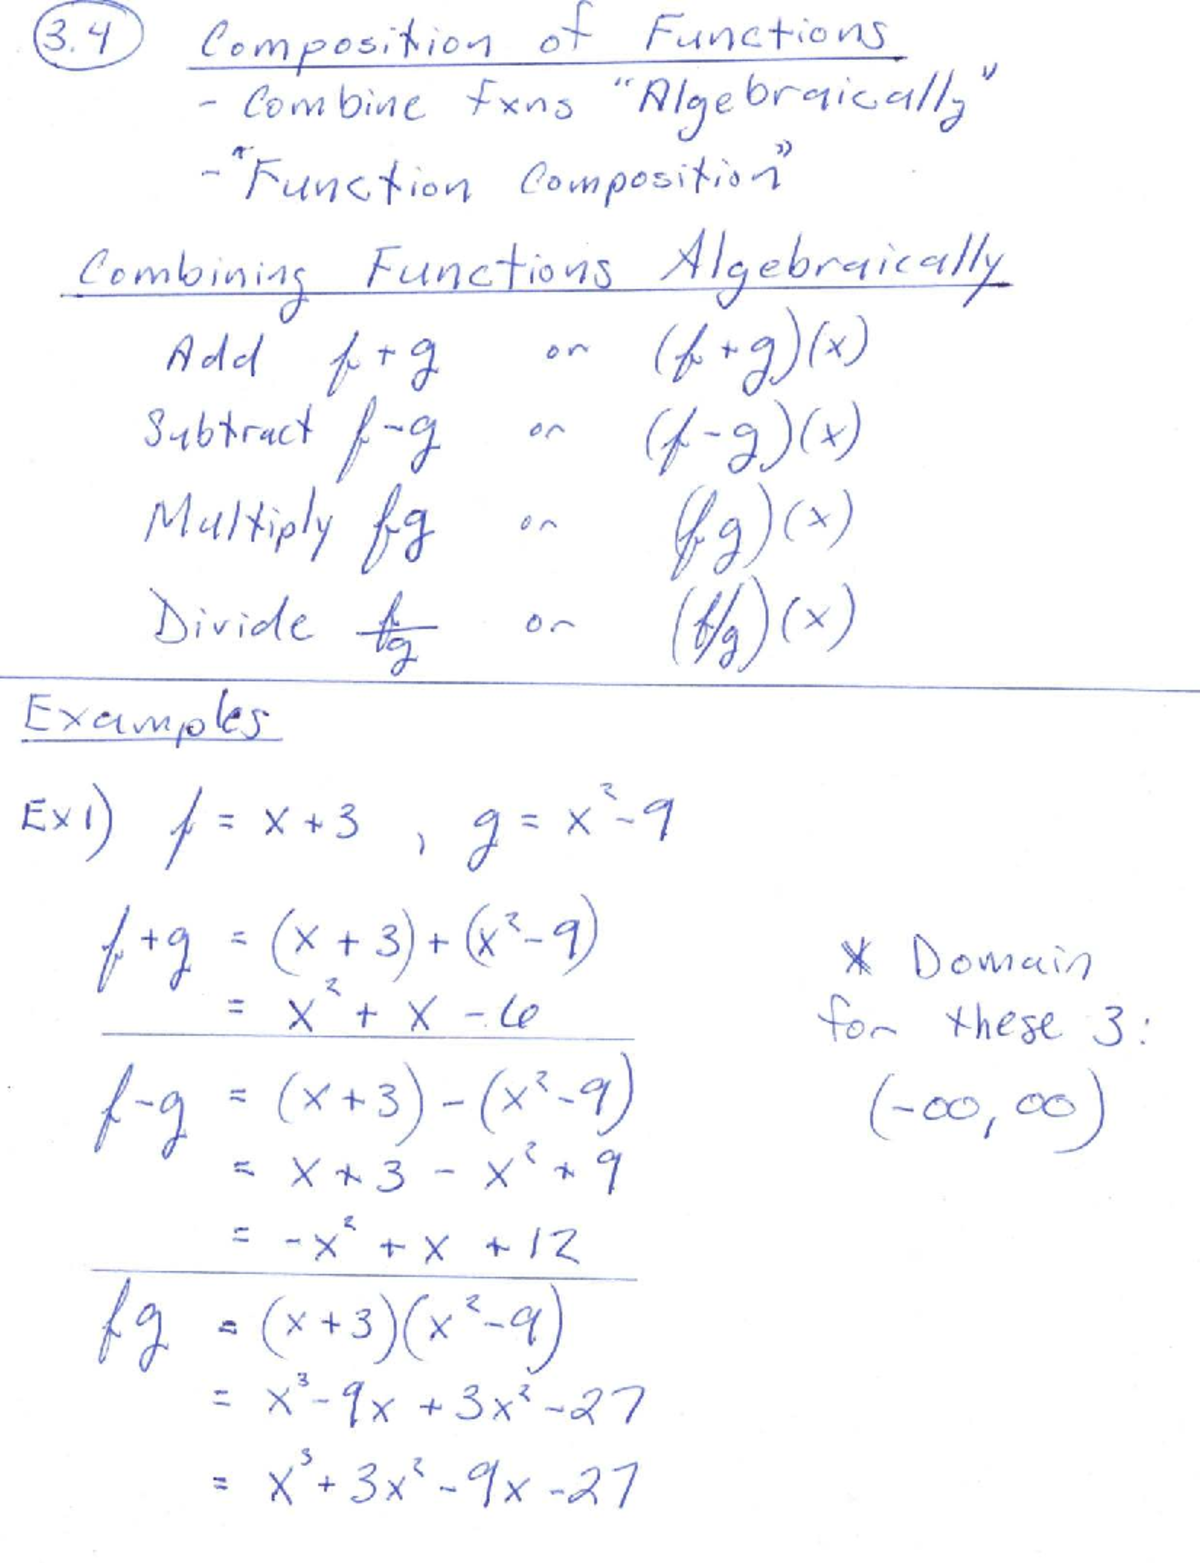 3.4 Composition of Functions
- Combine fxns "Algebraically"
- "Function Composition"
Combining Functions Algebraically
Add f+g or (f+g)(x)
Subtract f-g or (f-g)(x)
Multiply fg or (fg)(x)
Divide f/g or (f/g)(x)
Examples
Ex1) f = x+3 , g = x²-9
f+g = (x+3)+(x²-9)
= x² + x - 6
* Domain
for these 3:
(-∞, ∞)
f-g = (x+3)-(x²-9)
= x+3 - x² + 9
= -x² + x + 12
fg = (x+3)(x²-9)
= x³-9x+3x²-27
= x³+3x²-9x-27